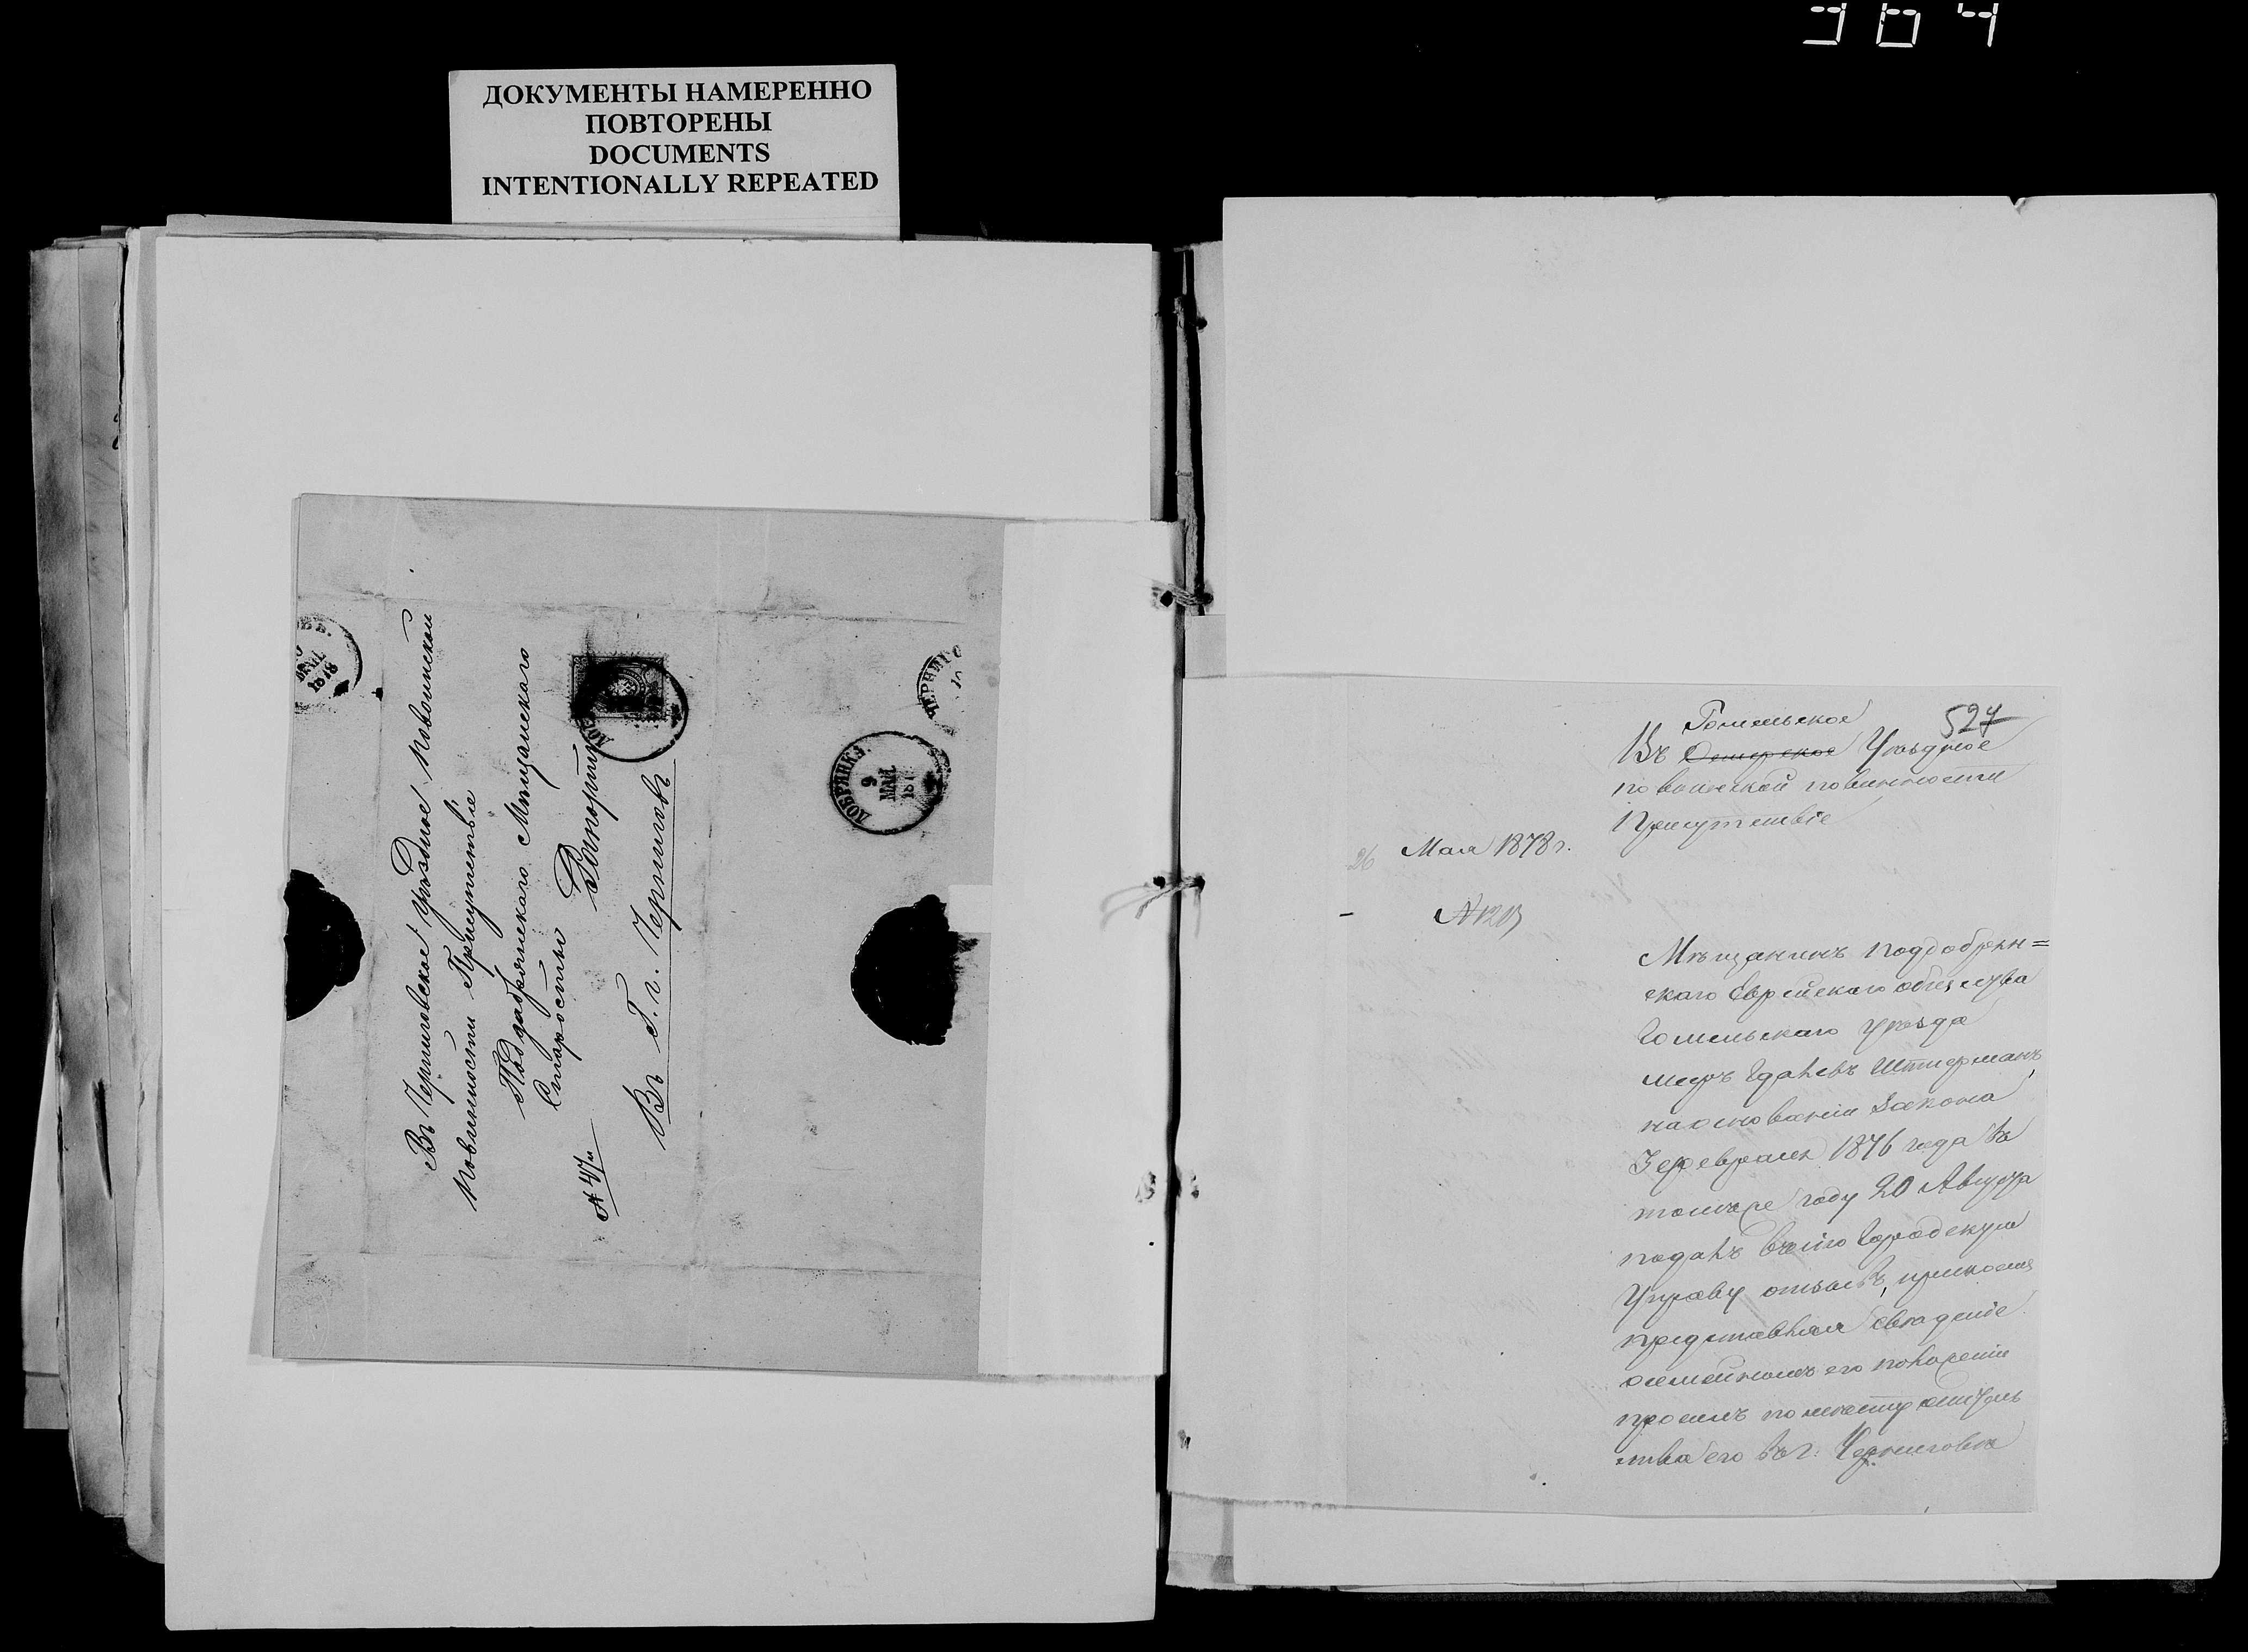 364
ДОКУМЕНТЫ НАМЕРЕННО
ПОВТОРЕНЫ
DOCUMENTS
INTENTIONALLY REPEATED
Въ Черниговское уѣздное повоинской
повинности Присутствіе
Поддобрянскаго Мѣщанскаго
Старосты Рапортъ
№ 47й
Въ Г. г. Черниговъ
ДОБРЯНКѢ.
9
МАЯ
187
ЧЕРНИГО
1878
527
Гомельское
Въ Остерское Уѣздное
по воинской повинности
Присутствіе
26 Мая 1878 г.
№ 1213
Мѣщанинъ Поддобрян=
скаго Еврейскаго общества
Гомельскаго уѣзда
Штерманъ,
на основаніи закона
3 февраля 1876 года въ
томже году 20 Августа
подалъ въ сію Городскую
Управу отзывъ,
представляя
о семейномъ его положеніи
просилъ по мѣсту жительства
ства его въ г. Черниговѣ